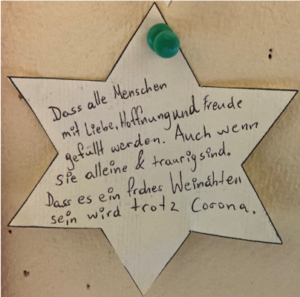 Dass alle Menschen
mit Liebe, Hoffnung und Freude
gefüllt werden. Auch wenn
sie alleine & traurig sind.
Dass es ein frohes Weinähten
sein wird trotz Corona.